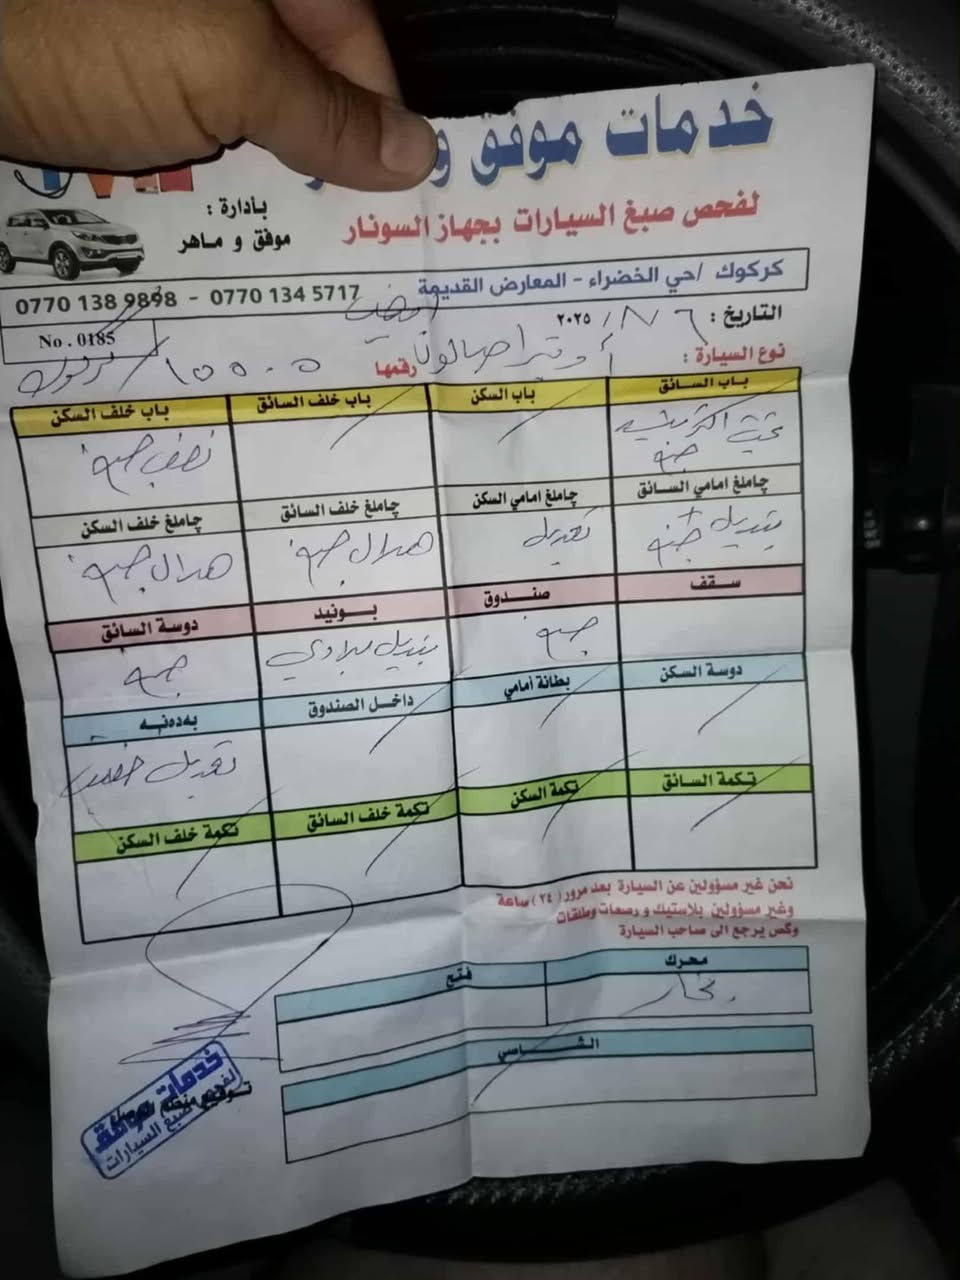 خدمات موفق و
لفحص صبغ السيارات بجهاز السونار
بأدارة :
موفق و ماهر
كركوك /حي الخضراء - المعارض القديمة
0770 138 9898 - 0770 134 5717
No . 0185
التاريخ : ٦ / ٨ / ٢٠٢٥
ابيض
نوع السيارة : أوبترا صالون رقمها ١٥٥٠٥ / كركوك
باب السائق باب السكن باب خلف السائق باب خلف السكن
صبغ / / نصف صبغ
چاملغ امامي السائق چاملغ امامي السكن چاملغ خلف السائق چاملغ خلف السكن
تبديل صبغ تعديل هلال صبغ هلال صبغ
سقف صندوق بونيد دوسة السائق
صبغ تبديل بلادي صبغ
دوسة السكن بطانة أمامي داخل الصندوق بەدەنە
/ / / تعديل خفيف
تكمة السائق تكمة السكن تكمة خلف السائق تكمة خلف السكن
/ / / /
نحن غير مسؤولين عن السيارة بعد مرور ( ٢٤ ) ساعة
وغير مسؤولين بلاستيك و رصعات وطلقات
وكس يرجع الى صاحب السيارة
محرك فتح
بخار
الشاسي
خدمات موفق
لفحص صبغ السيارات